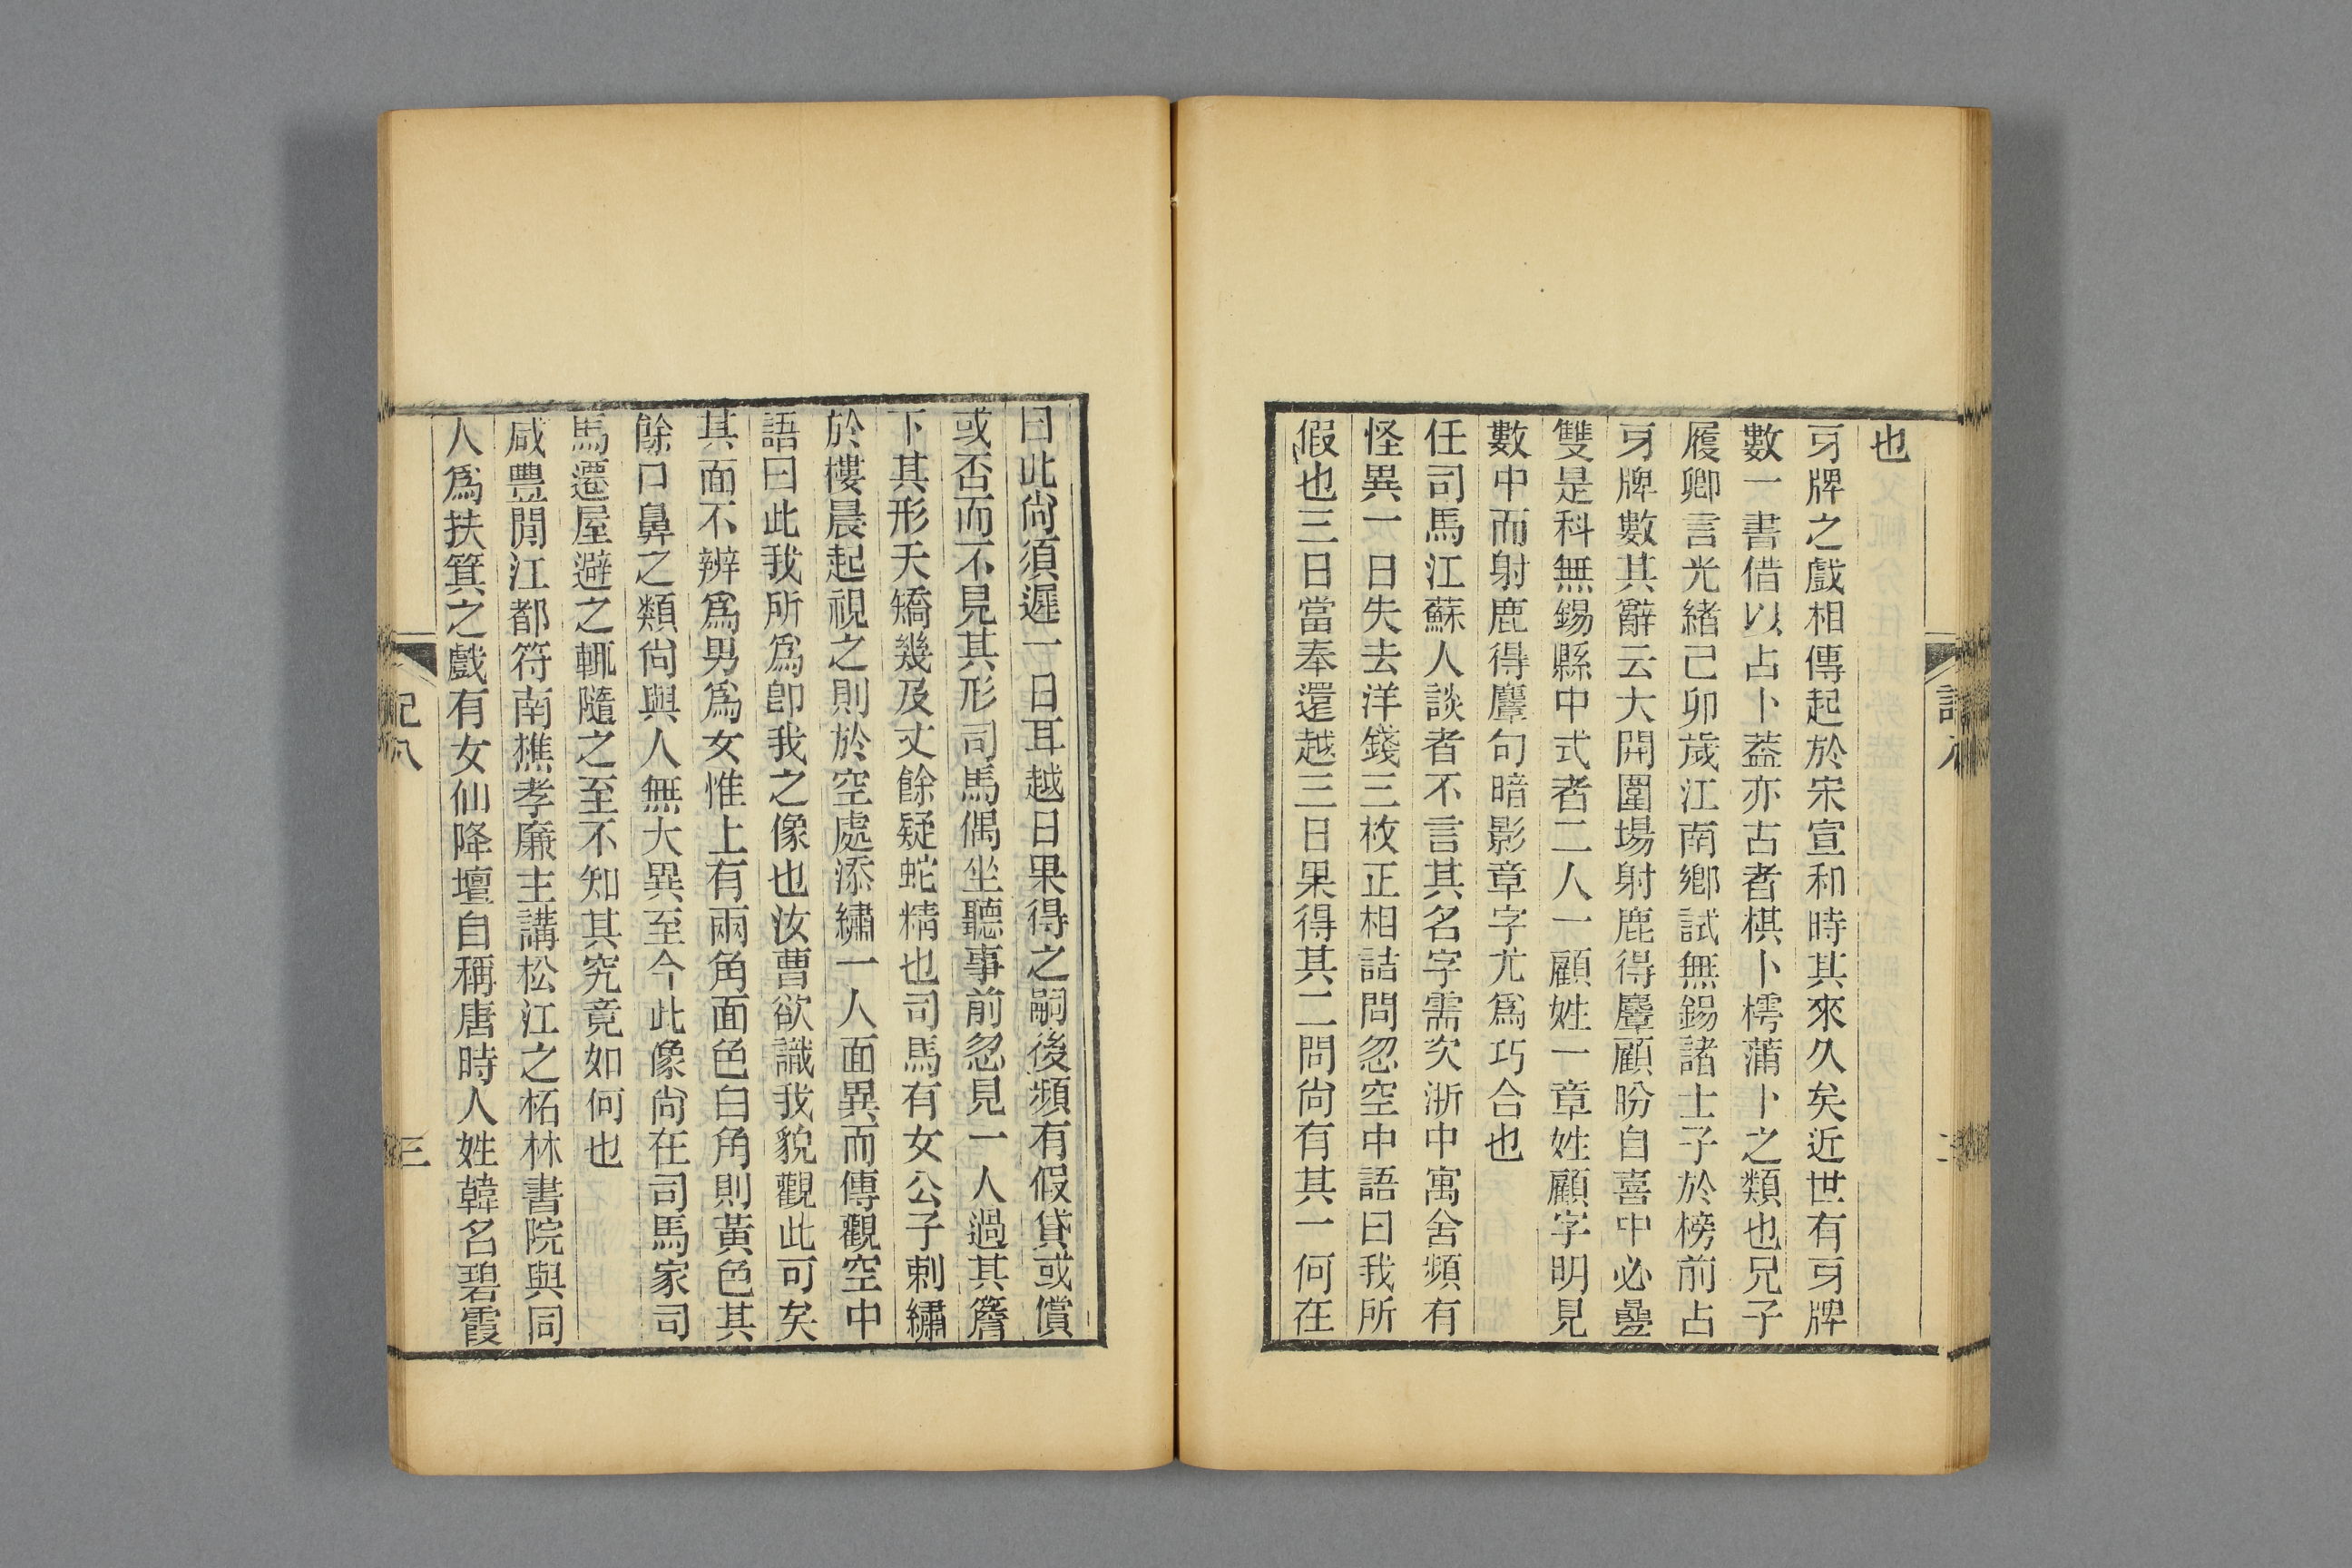 也
牙牌之戲相傳起於宋宣和時其來久矣近世有牙牌
數一書借以占卜葢亦古者棋卜樗蒲卜之類也兄子
履卿言光緒己卯歲江南鄉試無錫諸士子於榜前占
牙牌數其辭云大開圍場射鹿得麞顧盼自喜中必疊
雙是科無錫縣中式者二人一顧姓一章姓顧字明見
數中而射鹿得麞句暗影章字尤爲巧合也
任司馬江蘇人談者不言其名字需次浙中寓舍頻有
怪異一日失去洋錢三枚正相詰問忽空中語曰我所
假也三日當奉還越三日果得其二問尙有其一何在
曰此尙須遲一日耳越日果得之嗣後頻有假貸或償
或否而不見其形司馬偶坐聽事前忽見一人過其簷
下其形夭矯幾及丈餘疑蛇精也司馬有女公子刺繡
於樓晨起視之則於空處添繡一人面異而傳觀空中
語曰此我所爲卽我之像也汝曹欲識我貌觀此可矣
其面不辨爲男爲女惟上有兩角面色白角則黃色其
餘口鼻之類尙與人無大異至今此像尙在司馬家司
馬遷屋避之輒隨之至不知其究竟如何也
咸豐閒江都符南樵孝廉主講松江之柘林書院與同
人爲扶箕之戲有女仙降壇自稱唐時人姓韓名碧霞
記八
三